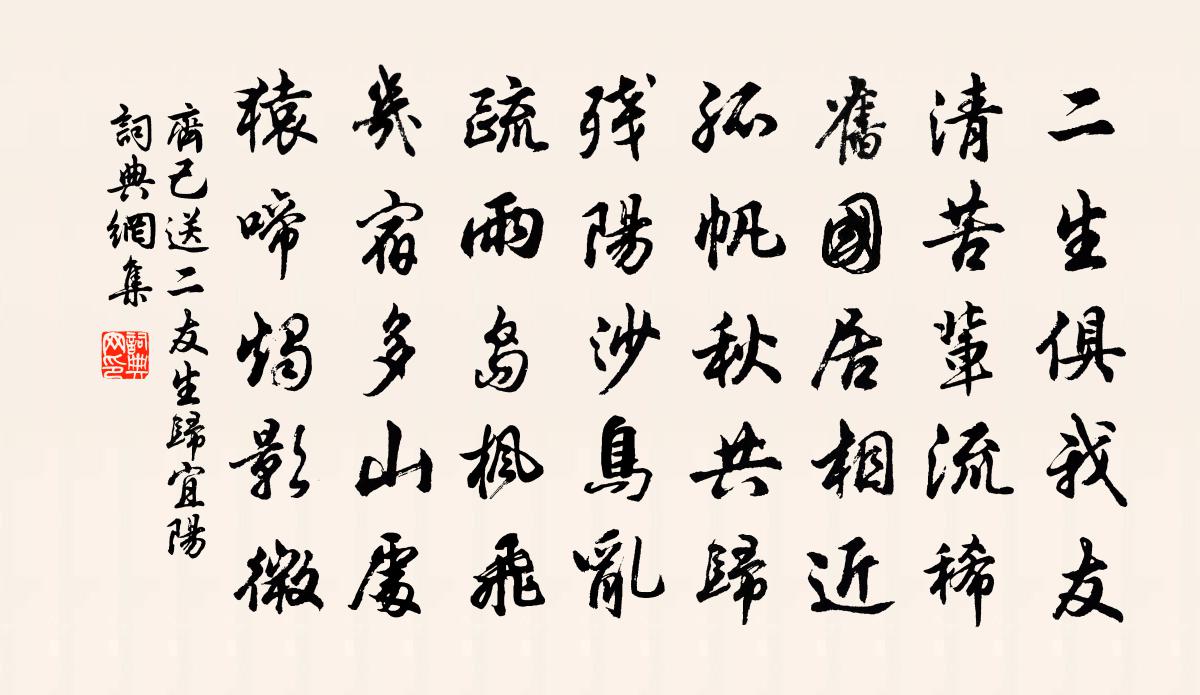 二生俱我友
清苦輩流稀
舊國居相近
孤帆秋共歸
残陽沙鳥亂
疏雨島楓飛
幾宿多山處
猿啼燭影微
齊己送二友生歸宜陽
詞典網集
詞典網印